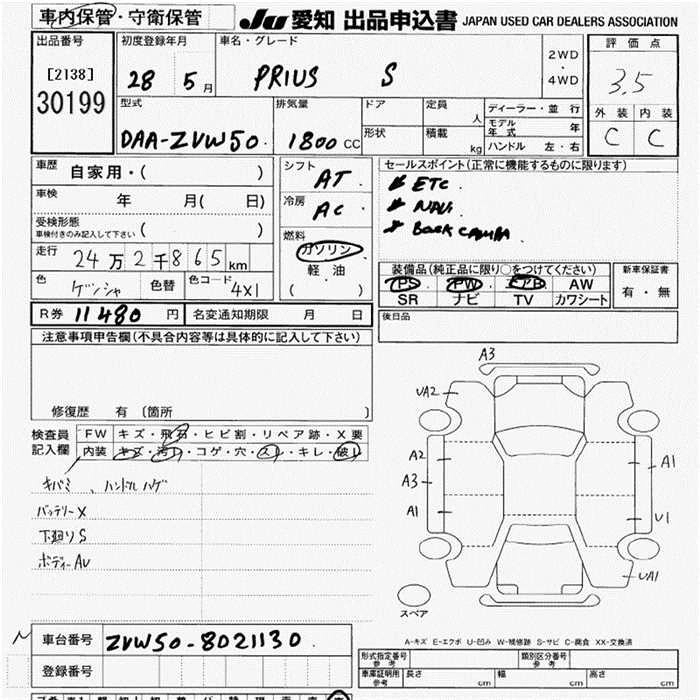 車内保管・守衛保管
JU 愛知 出品申込書 JAPAN USED CAR DEALERS ASSOCIATION
出品番号
[2138]
30199
初度登録年月
28 5月
車名・グレード
PRIUS S
2WD
・
4WD
評価点
3.5
外装 内装
C C
型式
DAA-ZVW50
排気量
1800 CC
ドア
形状
定員
人
積載
kg
ディーラー・並行
モデル年式 年
ハンドル 左・右
車歴 自家用・( )
車検 年 月( 日)
受検形態
車検付きのみ記入して下さい ( )
走行 24万2千865km
色 ゲンシャ 色替 色コード 4X1
シフト
AT
冷房
AC
燃料
ガソリン
・
軽油
( )
セールスポイント(正常に機能するものに限ります)
ETC.
NAVI.
Back camera
装備品(純正品に限り○をつけてください)
PS PW エアB AW
SR ナビ TV カワシート
新車保証書
有・無
R券 11480 円 名変通知期限 月 日
後日品
注意事項申告欄(不具合内容等は具体的に記入して下さい)
修復歴 有 [箇所 ]
検査員
記入欄
FW キズ・飛石・ヒビ割・リペア跡・X要
内装 キズ・汚レ・コゲ・穴・スレ・キレ・破レ
キバミ、ハンドルハゲ
バッテリーX
下廻りS
ボディーAU
A3
UA2
A2
A3
A1
A1
U1
UA1
スペア
A-キズ E-エクボ U-凹み W-補修跡 S-サビ C-腐食 XX-交換済
車台番号 ZVW50-8021130
登録番号
形式指定番号
参考
類別区分番号
参考
車庫証明用
参考
長さ cm 幅 cm 高さ cm